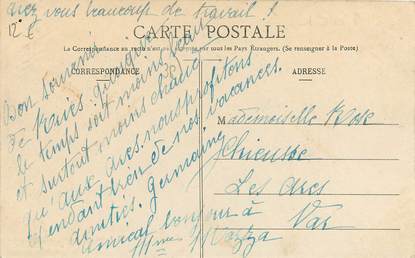 avez vous beaucoup de travail ?
12 €
CARTE POSTALE
La Correspondance au recto n'est pas acceptée par tous les Pays Étrangers. (Se renseigner à la Poste)
CORRESPONDANCE
ADRESSE
Bon souvenir
de Rives. quoique
le temps soit moins beau
et surtout moins chaud
qu'aux Arcs. nous profitons
pendant de nos vacances.
amitiés. Germaine
amical bonjour à
Mme Mazza
Mademoiselle Rose
Thieusse
Les Arcs
Var